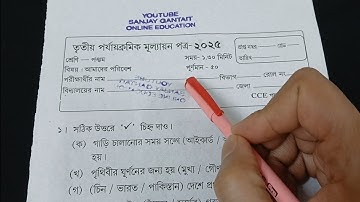 YOUTUBE
SANJAY GANTAIT
ONLINE EDUCATION
তৃতীয় পর্যায়ক্রমিক মূল্যায়ন পত্র-২০২৫
শ্রেণী – পঞ্চম
সময়-১.৩০ মিনিট
বিষয় : আমাদের পরিবেশ
পূর্ণমান - ৫০
পরীক্ষার্থীর নাম
বিভাগ
রোল নং
বিদ্যালয়ের নাম
জেলা
CCE
১। সঠিক উত্তরে '✓' চিহ্ন দাও।
(ক) গাড়ি চালানোর সময় সঙ্গে (আইকার্ড /
হয়।
(খ) পৃথিবীর ঘূর্ণনের জন্য হয় (মুখ্য / গৌণ
(গ) (চিন / ভারত / পাকিস্তান) দেশে